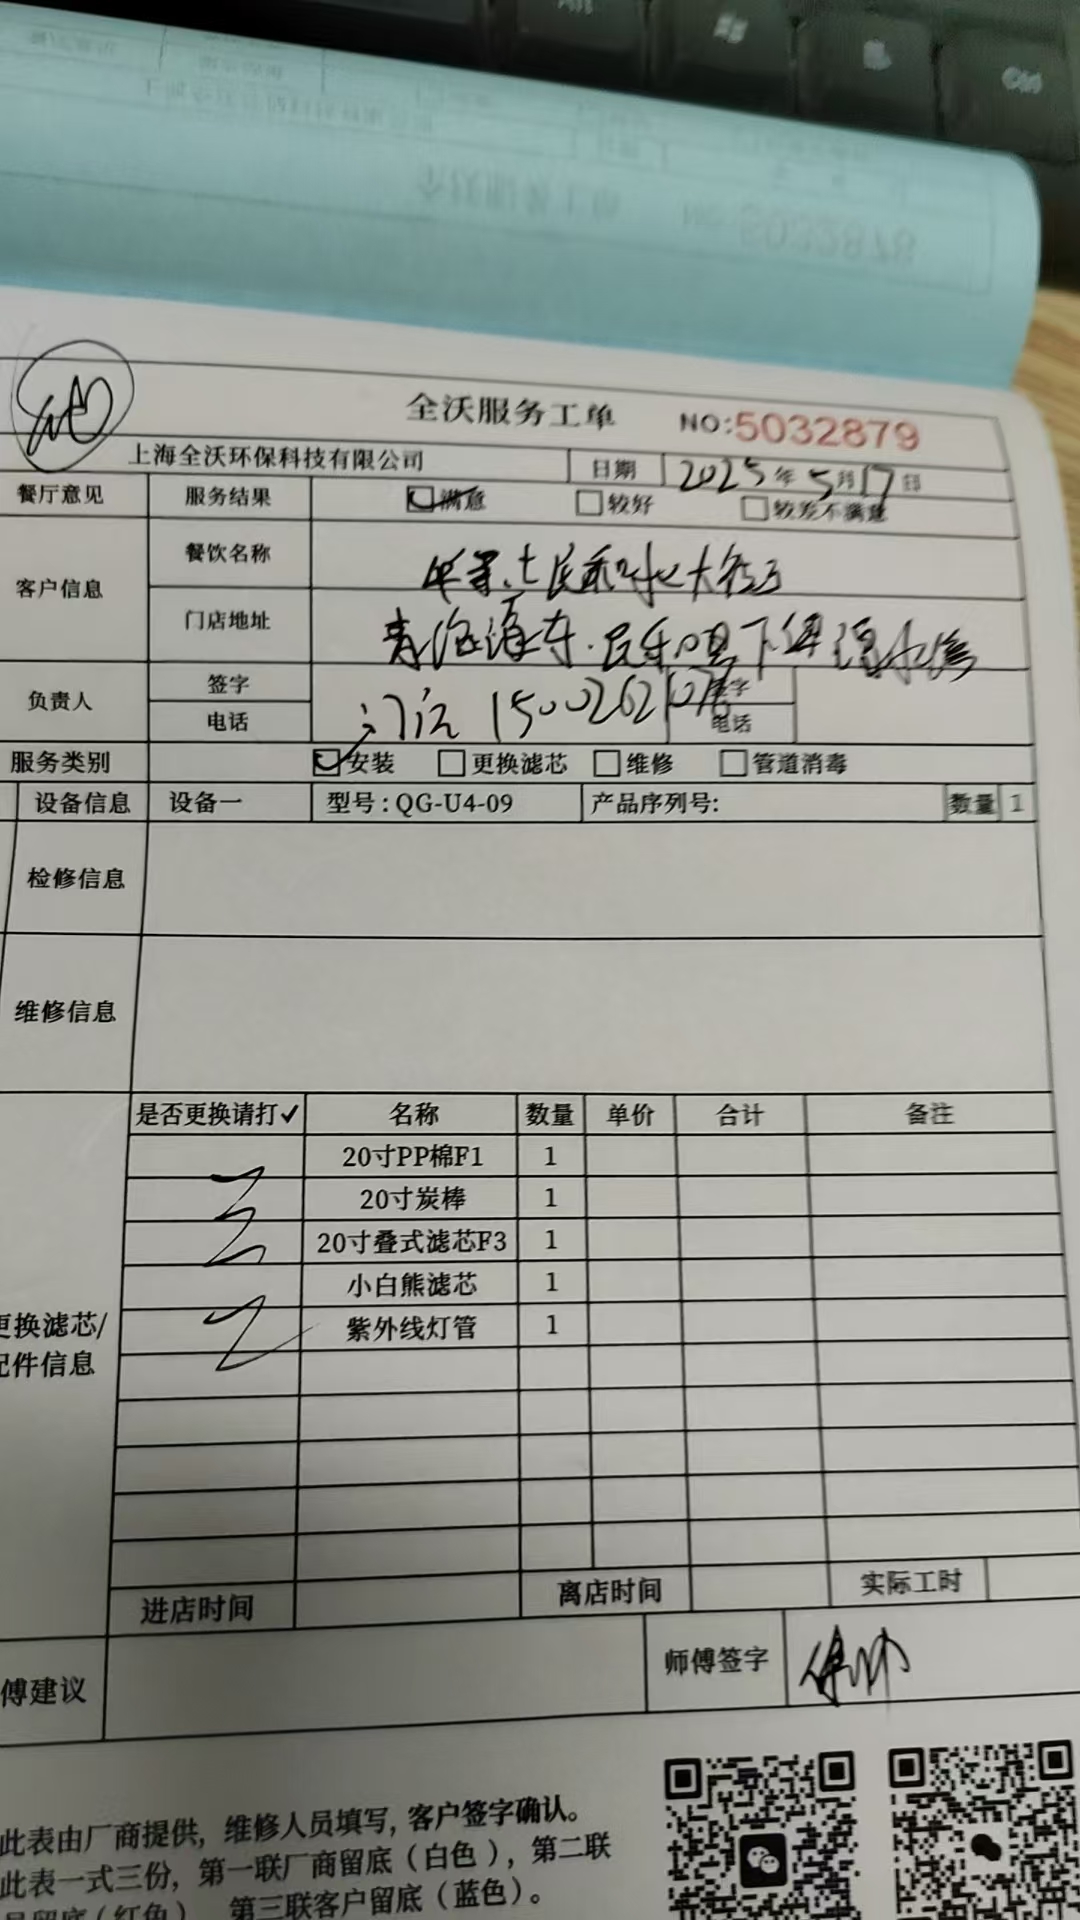 全沃服务工单 NO:5032879
上海全沃环保科技有限公司 日期 2025年5月17日
餐厅意见 服务结果 满意 较好 较差不满意
客户信息 餐饮名称
门店地址 青海海东.民和县下
负责人 签字 签字
电话 电话
服务类别 安装 更换滤芯 维修 管道消毒
设备信息 设备一 型号:QG-U4-09 产品序列号: 数量 1
检修信息
维修信息
是否更换请打✓ 名称 数量 单价 合计 备注
20寸PP棉F1 1
20寸炭棒 1
20寸叠式滤芯F3 1
小白熊滤芯 1
更换滤芯/ 紫外线灯管 1
配件信息
进店时间 离店时间 实际工时
傅建议 师傅签字
此表由厂商提供, 维修人员填写, 客户签字确认。
此表一式三份, 第一联厂商留底(白色), 第二联
留底(红色) 第三联客户留底(蓝色)。